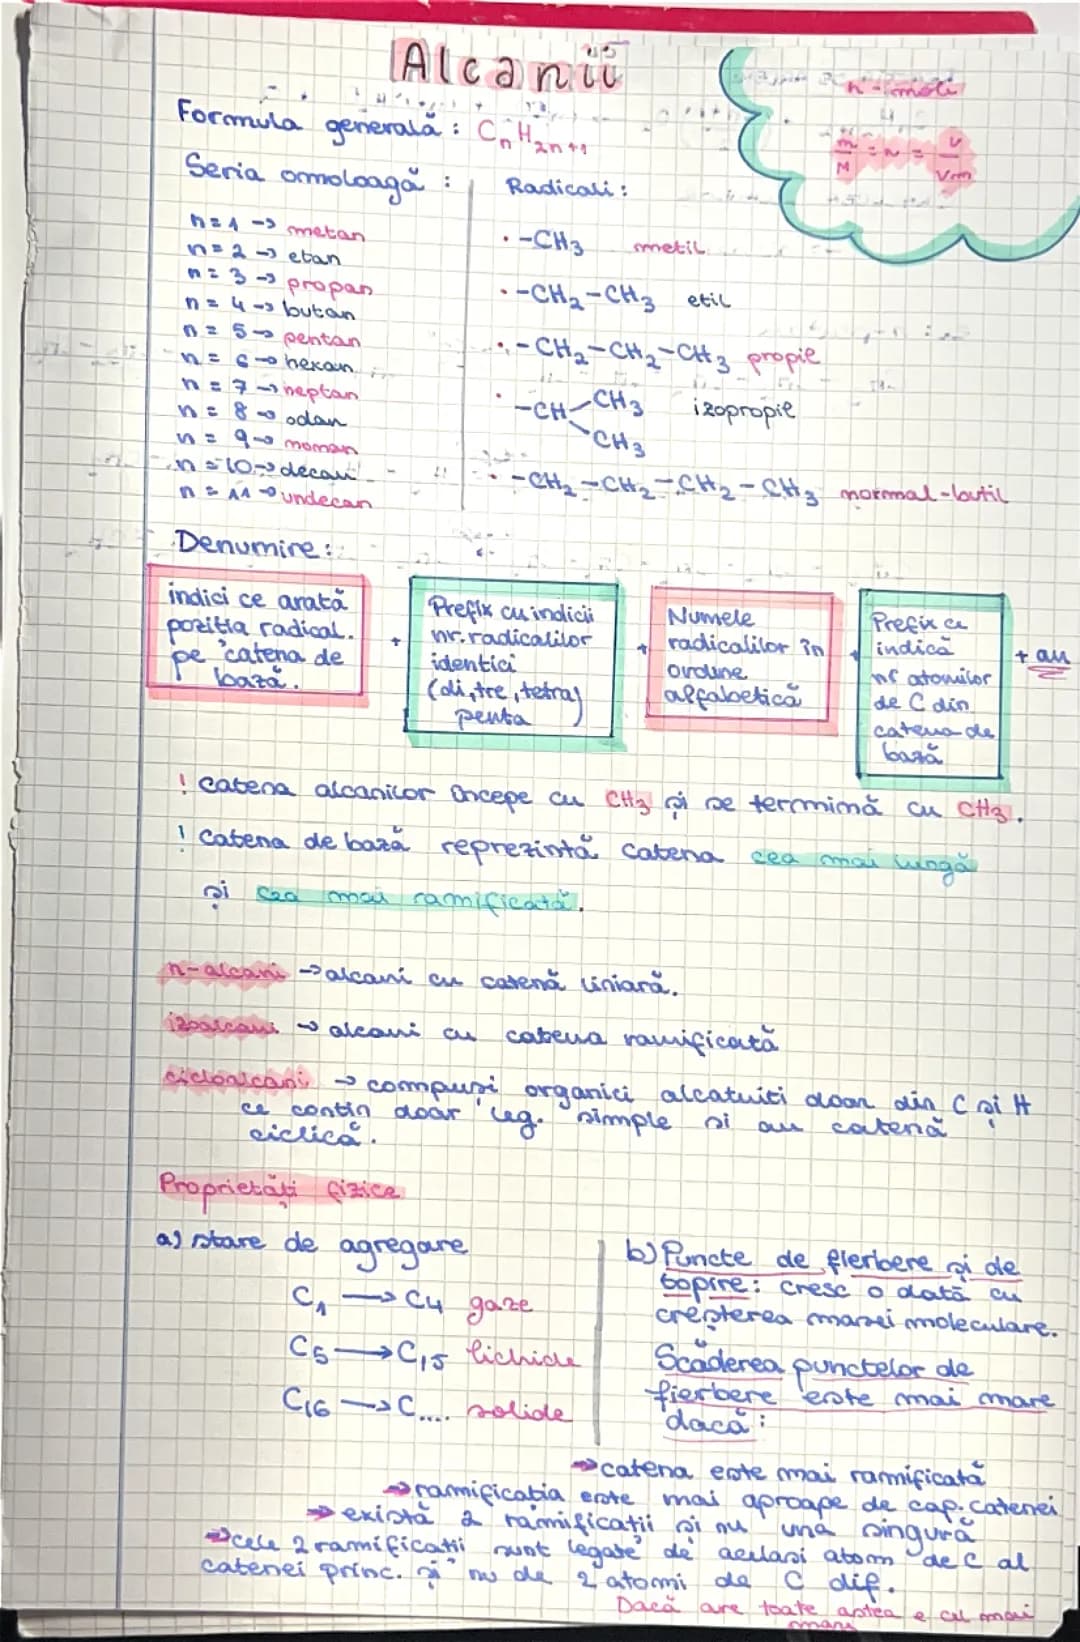 Alcanii
n-moli
m/M = n = V/Vm
Formula generală : CnH2n+1
Seria omoloagă :
n=1 -> metan
n=2 -> etan
n=3 -> propan
n=4 -> butan
n=5 -> pentan
n=6 -> hexan
n=7 -> heptan
n=8 -> odan
n=9 -> nonan
n=10 -> decan
n=11 -> undecan
Radicali :
• -CH3 metil
• -CH2-CH3 etil
• -CH2-CH2-CH3 propil
• -CH-CH3 izopropil
CH3
• -CH2-CH2-CH2-CH3 normal-butil
Denumire :
indici ce arată
poziția radical.
pe catena de
bază.
+
Prefix cu indicii
nr. radicalilor
identici
(di, tre, tetra)
penta
+
Numele
radicalilor în
ordine
alfabetică
+
Prefix ce
indică
nr atomilor
de C din
catena de
bază
+ an
! catena alcanilor începe cu CH3 și se termină cu CH3.
! catena de bază reprezintă catena cea mai lungă
și cea mai ramificată.
n-alcani -> alcani cu catenă liniară.
izoalcani -> alcani cu catena ramificată
cicloalcani -> compuși organici alcatuiti doar din C și H
ce contin doar leg. simple si au catenă
ciclică.
Proprietăți fizice
a) stare de agregare
C1 -> C4 gaze
C5 -> C15 lichide
C16 -> C.... solide
b) Puncte de fierbere și de
topire: cresc o dată cu
creșterea masei moleculare.
Scăderea punctelor de
fierbere este mai mare
dacă :
-> catena este mai ramificată
-> ramificatia este mai aproape de cap. catenei
-> există 2 ramificatii și nu una singură
-> cele 2 ramificatii sunt legate de acelasi atom de C al
catenei princ. și nu de 2 atomi de C dif.
Dacă are toate astea e cel mai
mare